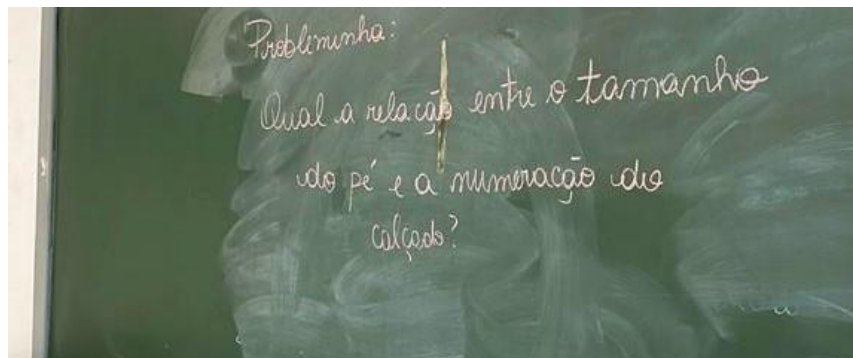 Probleminha:
Qual a relação entre o tamanho
do pé e a numeração do
calçado?